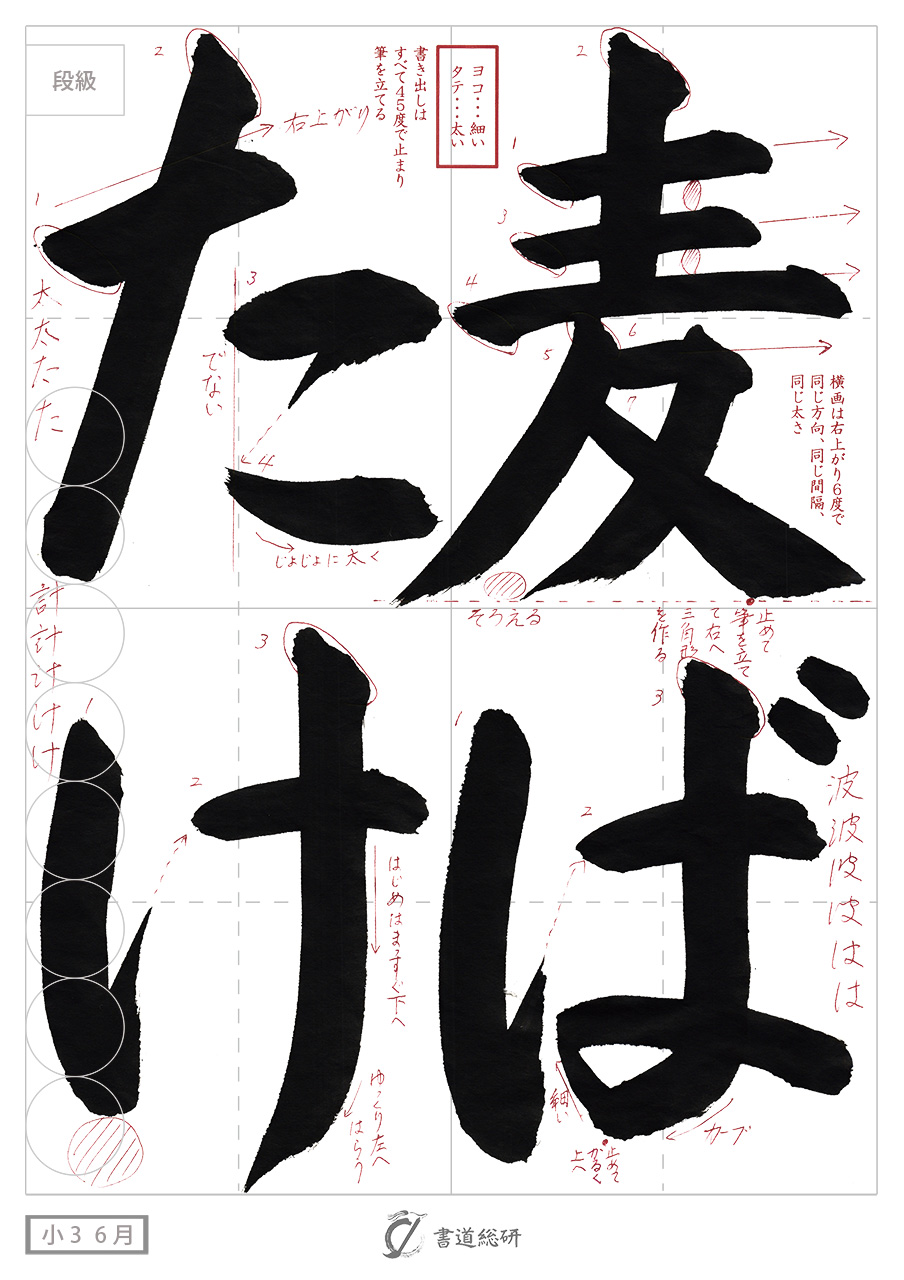 麦ば
たけ
ヨコ・・・細い
タテ・・・太い
書き出しは
すべて45度で止まり
筆を立てる
段級
2
1
3
4
5
6
7
横画は右上がり6度で
同じ方向、同じ間隔、
同じ太さ
そろえる
止めて
筆を立て
て右へ
三角形
を作る
1
2
3
波波波波はは
カーブ
細い
止めて
かるく
上へ
2
右上がり
1
太太たた
た
3
でない
4
じょじょに太く
計計けけけ
1
2
3
はじめはまっすぐ下へ
ゆっくり左へ
はらう
小3 6月
書道総研